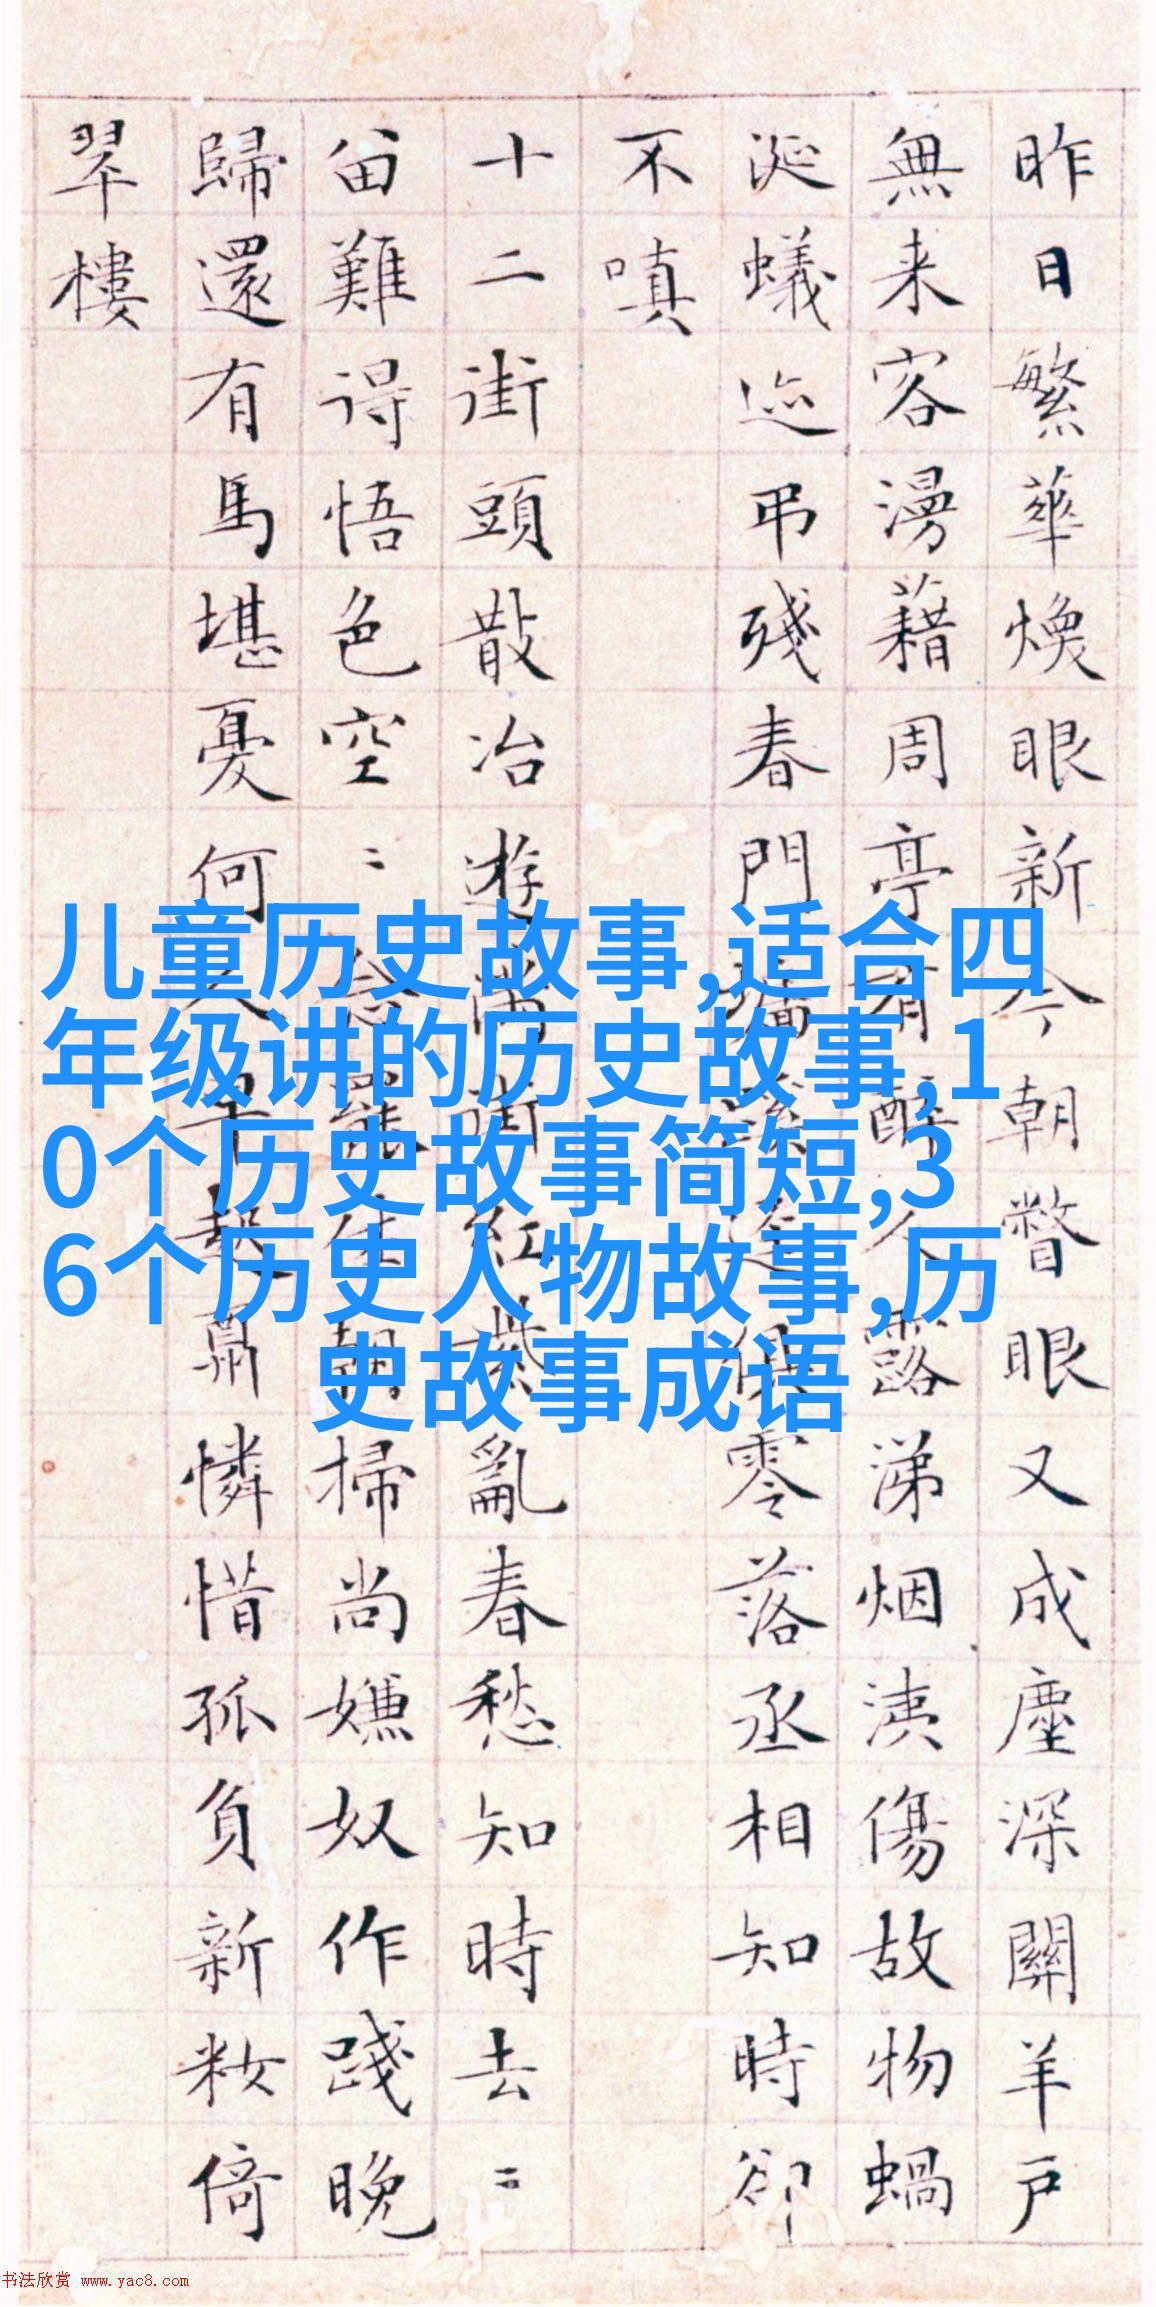 昨日繁華煥眼新今朝瞥眼又成塵深關羊戶
無来客漫藉周亭有醉人露涕烟洟傷故物蝸
涎蟻迹弔殘春門墻零落丞相知時卻
不嗔
十二街頭散冶遊滿街紅紫亂春愁知時去〻
畄難得悟色空〻罷掃尚嫌奴作踐晚
歸還有馬堪憂何人早起憐惜孤負新妝倚
翠樓
儿童历史故事,适合四
年级讲的历史故事,1
0个历史故事简短,3
6个历史人物故事,历
史故事成语
书法欣赏 www.yac8.com